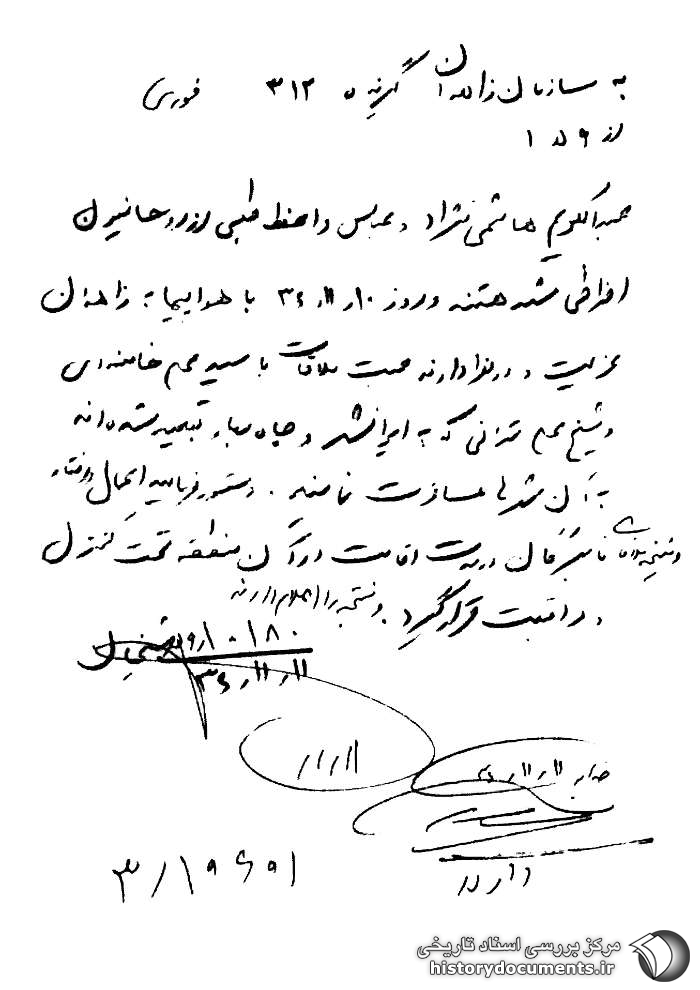 به سازمان زاهدان گیرنده ۳۱۲ فوری
از ۹ ه ۱
عبدالکریم هاشمی نژاد و عباس واعظ طبسی از روحانیون
افراطی مشهد هستند و روز ۱۰ر۱۱ر۳۶ با هواپیما به زاهدان
عزیمت و در نظر دارند جهت ملاقات با سید علی خامنه‌ای
و شیخ علی تهرانی که به ایرانشهر و چاه بهار تبعید شده‌اند
به آن شهرها مسافرت نمایند. دستور فرمایید اعمال و رفتار
و نتیجه ملاقات نامبردگان در مدت اقامت در آن منطقه تحت کنترل
و مراقبت قرار گیرد. و نتیجه را اعلام دارند
۱۰۱۸۰
۱۱ر۱۱ر۳۶
۱۱ر۱۱ر۳۶
مرکز بررسی اسناد تاریخی
historydocuments.ir